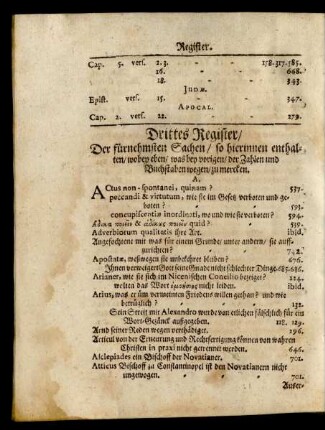 Register.
Cap. 5. vers. 2. 3. - - 158. 317. 585.
16. - - 668.
18. - - 343.
JUDÆ.
Epist. vers. 15. - - 347.
APOCAL.
Cap. 2. vers. 22. - - 279.
Drittes Register/
Der fürnehmsten Sachen/ so hierinnen enthal-
ten/ wobey eben/ was bey vorigen/ der Zahlen und
Buchstaben wegen/ zu mercken.
A.
ACtus non-spontanei, quinam? - - 537.
peccandi & virtutum, wie sie im Gesetz verboten und ge-
boten? - - 593.
concupiscentiæ inordinati, wo und wie sie verboten? 594.
quid? - - 559.
Adverbiorum qualitatis ihre Art. - ibid.
Angefochtene mit was für einem Grunde unter andern/ sie auff-
zurichten? - - 742.
Apostatæ, weßwegen sie unfehlbare bleiben? - 676.
Ihnen verweigert Gott seine Gnade nicht schlechter Dinge. 685. 686.
Arianer, wie sie sich im Nicenischen Concilio bezeiget? 124.
wolten das Wort nicht leiden. ibid.
Arius, was er üm vermeinten Friedens willen gethan? und wie
betrüglich? - - 132.
Sein Streit mit Alexandro wurde von etlichen fälschlich für ein
Wort-Gezänck ausgegeben. - 118. 129.
Arnd seiner Reden wegen vertheidiget. - 196.
Articul von der Erneurung und Rechtfertigung können von wahren
Christen in praxi nicht getrennet werden. - 646.
Asclepiades ein Bischoff der Novatianer. - 701.
Atticus Bischoff zu Constantinopel ist den Novatianern nicht
ungewogen. - - 701.